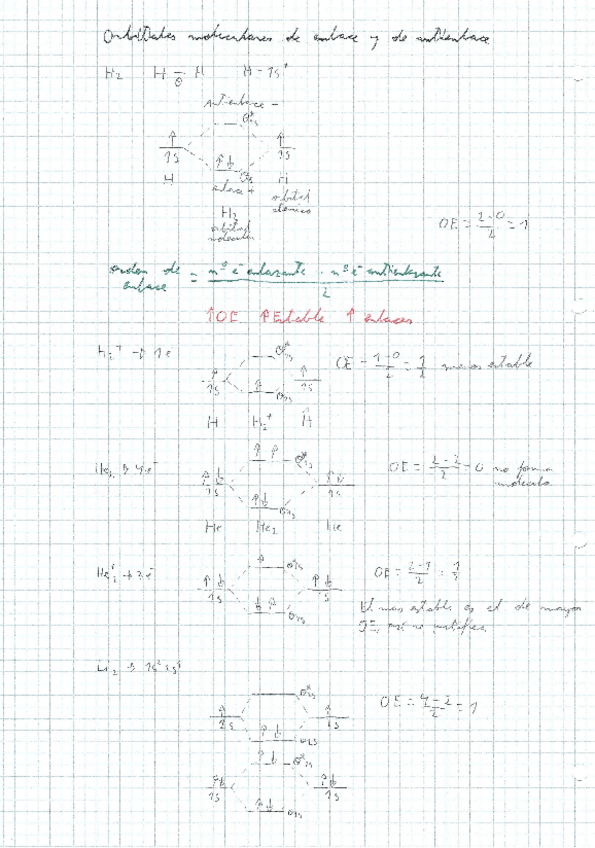 Orbitales moleculares de enlace y de antienlace
H₂ H – H H – 1s¹
antienlace –
σ*1s
↑ ↑
1s 1s
↑↓
H σ1s H
enlace +
orbital
atómico
H₂
orbital
molecular
OE = 2-0/2 = 1
Orden de = nº e⁻ enlazante - nº e⁻ antienlazante
enlace 2
↑OE ↑Estable ↑ enlaces
H₂⁺ → 1e
σ*1s
OE = 1-0/2 = 1/2 menos estable
↑ ↑ ↑
1s σ1s 1s
H H₂⁺ H
He₂ → 4e⁻
↑ ↑ σ*1s
OE = 2-2/2 = 0 no forma
molécula
↑↓ ↑↓
1s 1s
↑↓ σ1s
He He₂ He
He₂⁺ → 3e⁻
↑ σ1s
OE = 2-1/2 = 1/2
↑↓ ↑↓
1s 1s
↓↑ σ1s
El mas estable es el de mayor
OE, así se justifica
Li₂ → 1s² 2s¹
σ*1s
OE = 4-2/2 = 1
↑ ↑
1s 1s
↑↓ σ1s
↑↓ σ*1s
↑↓ ↑↓
1s 1s
↑↓ σ1s